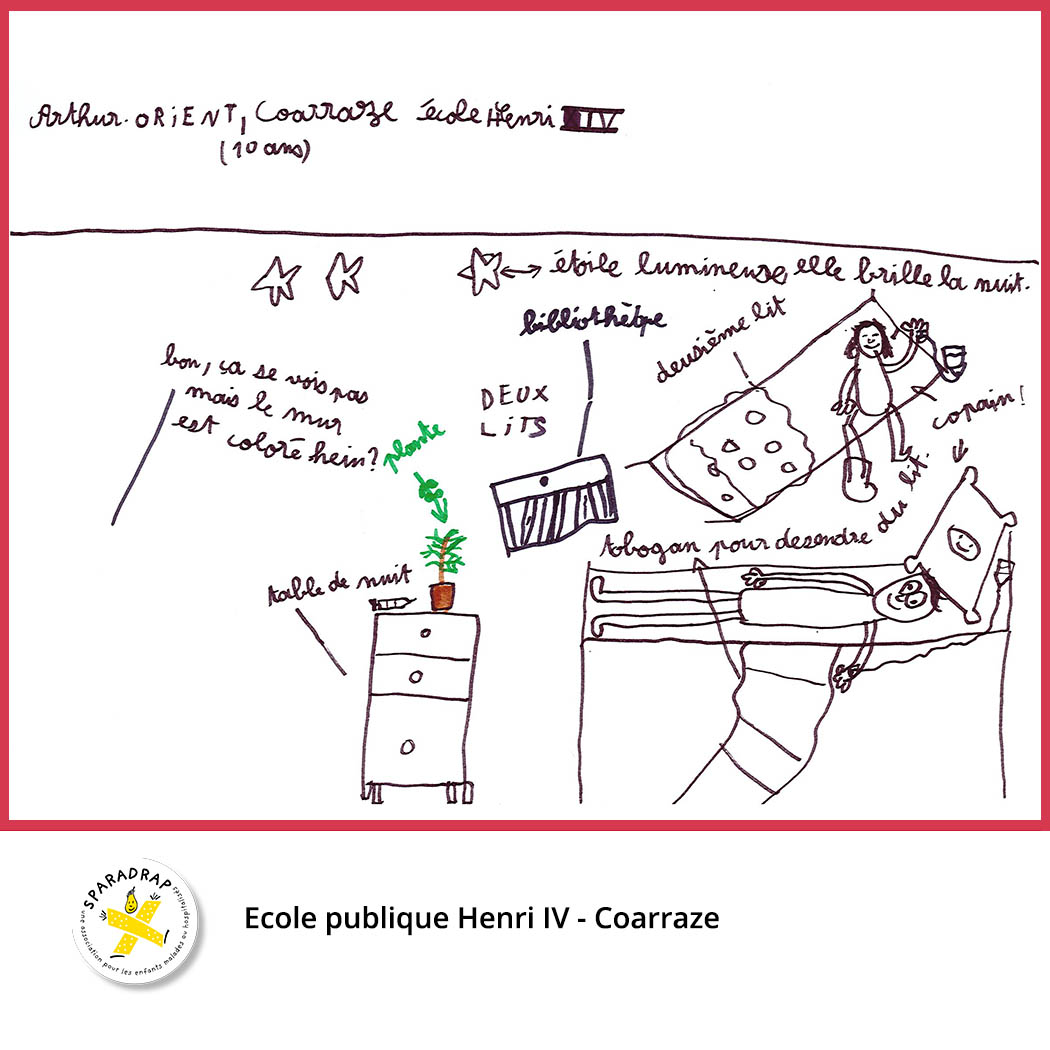 Arthur. ORIENT, Coarraze école Henri IV
(10 ans)
étoile lumineuse elle brille la nuit.
bibliothèqe
deusième lit
bon, ça se vois pas
mais le mur
est coloré hein?
DEUX
LiTS
copain!
plante
tobogan pour desendre du lit.
table de nuit
SPARADRAP
une association pour les enfants malades ou hospitalisés
Ecole publique Henri IV - Coarraze